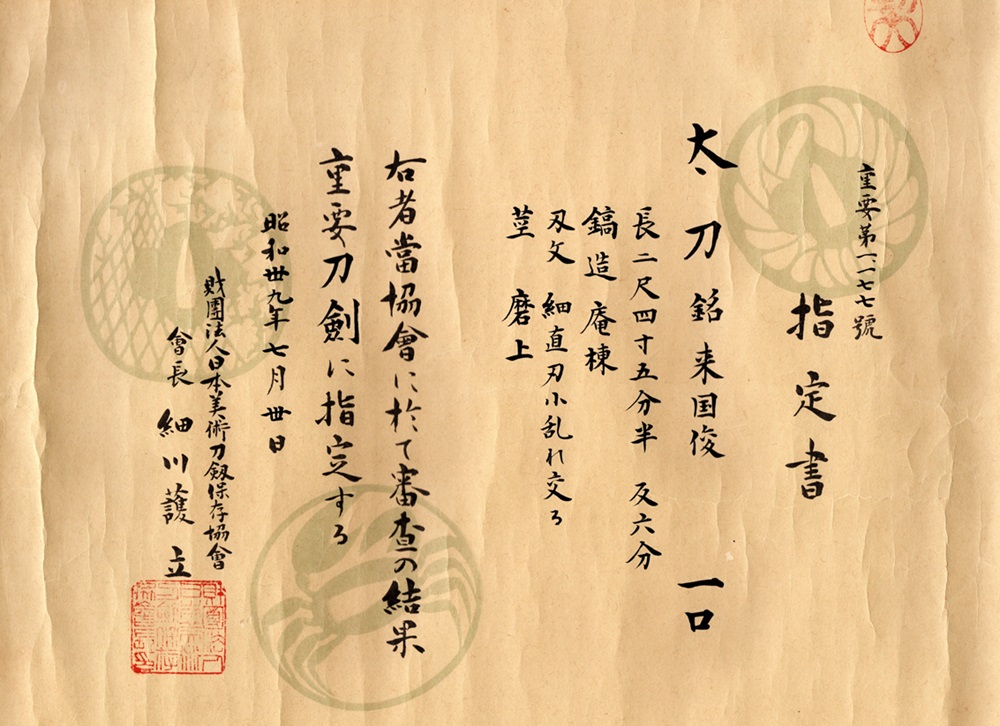 重要第一、一七七號
指定書
太刀 銘 来国俊 一口
長二尺四寸五分半 反六分
鎬造 庵棟
刃文 細直刃小乱れ交る
茎 磨上
右者當協會に於て審査の結果
重要刀劍に指定する
昭和卅九年七月卅日
財團法人日本美術刀劔保存協會
會長 細川護立